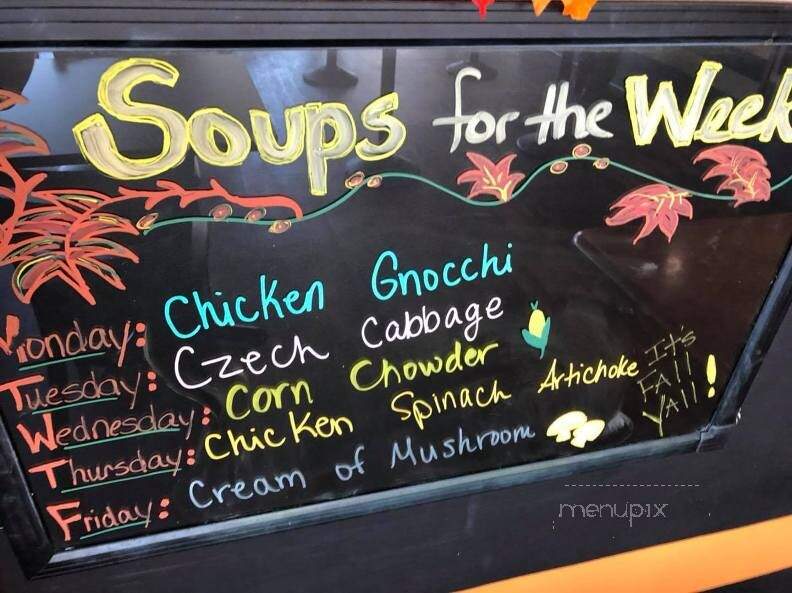 Soups for the Week
Monday: Chicken Gnocchi
Tuesday: Czech Cabbage
Wednesday: Corn Chowder
Thursday: Chicken Spinach Artichoke
Friday: Cream of Mushroom
It's
FAll
YAll!
menupix